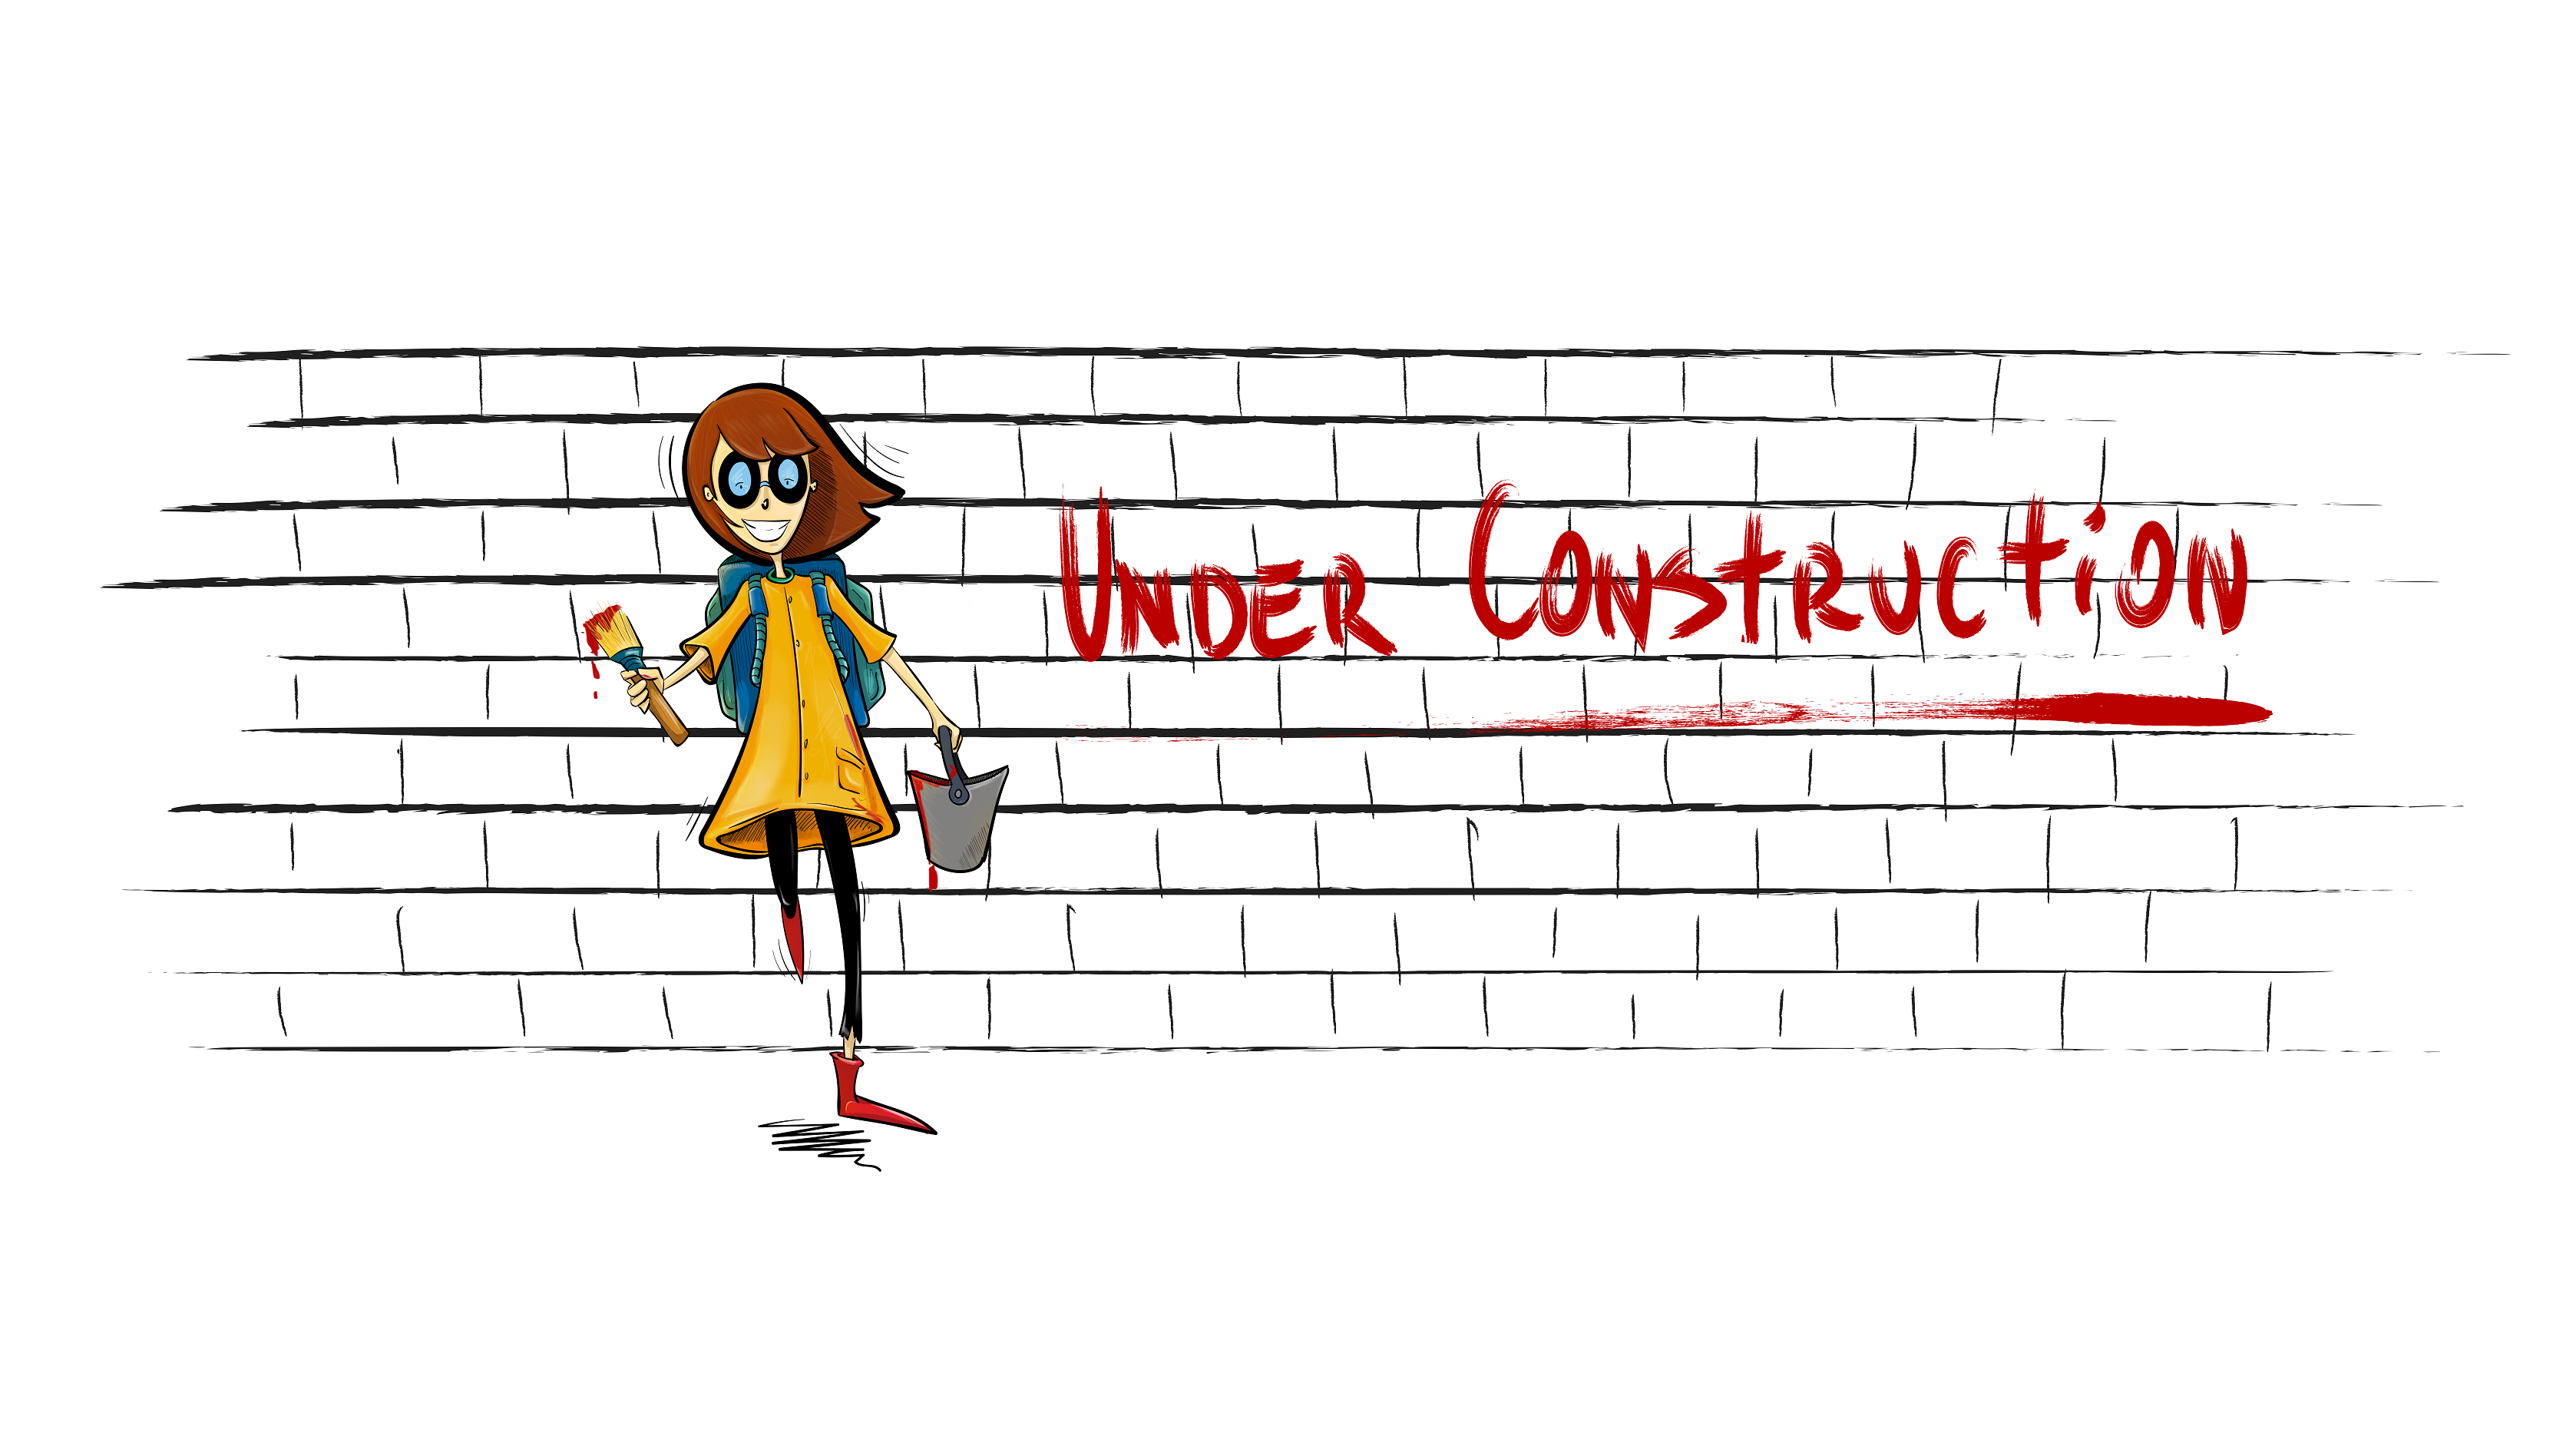 Under Construction